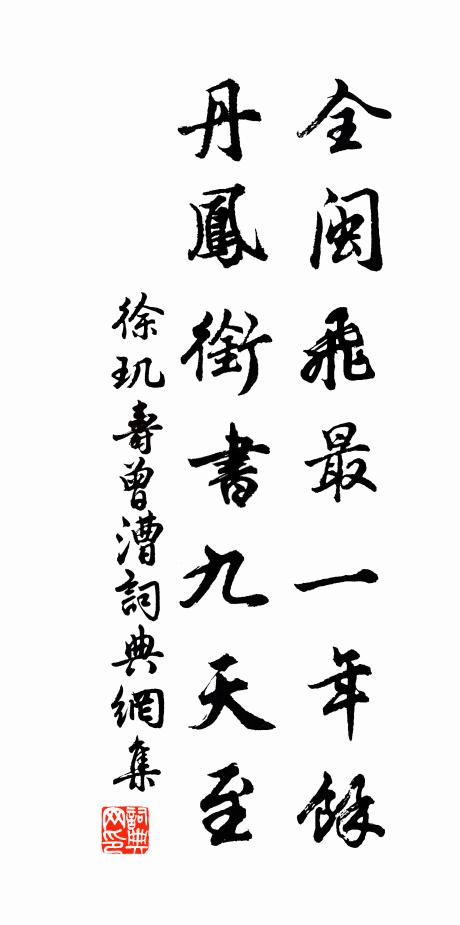 全閩飛最一年餘
丹鳳銜書九天至
徐璣壽曾漕詞典網集
詞典网印